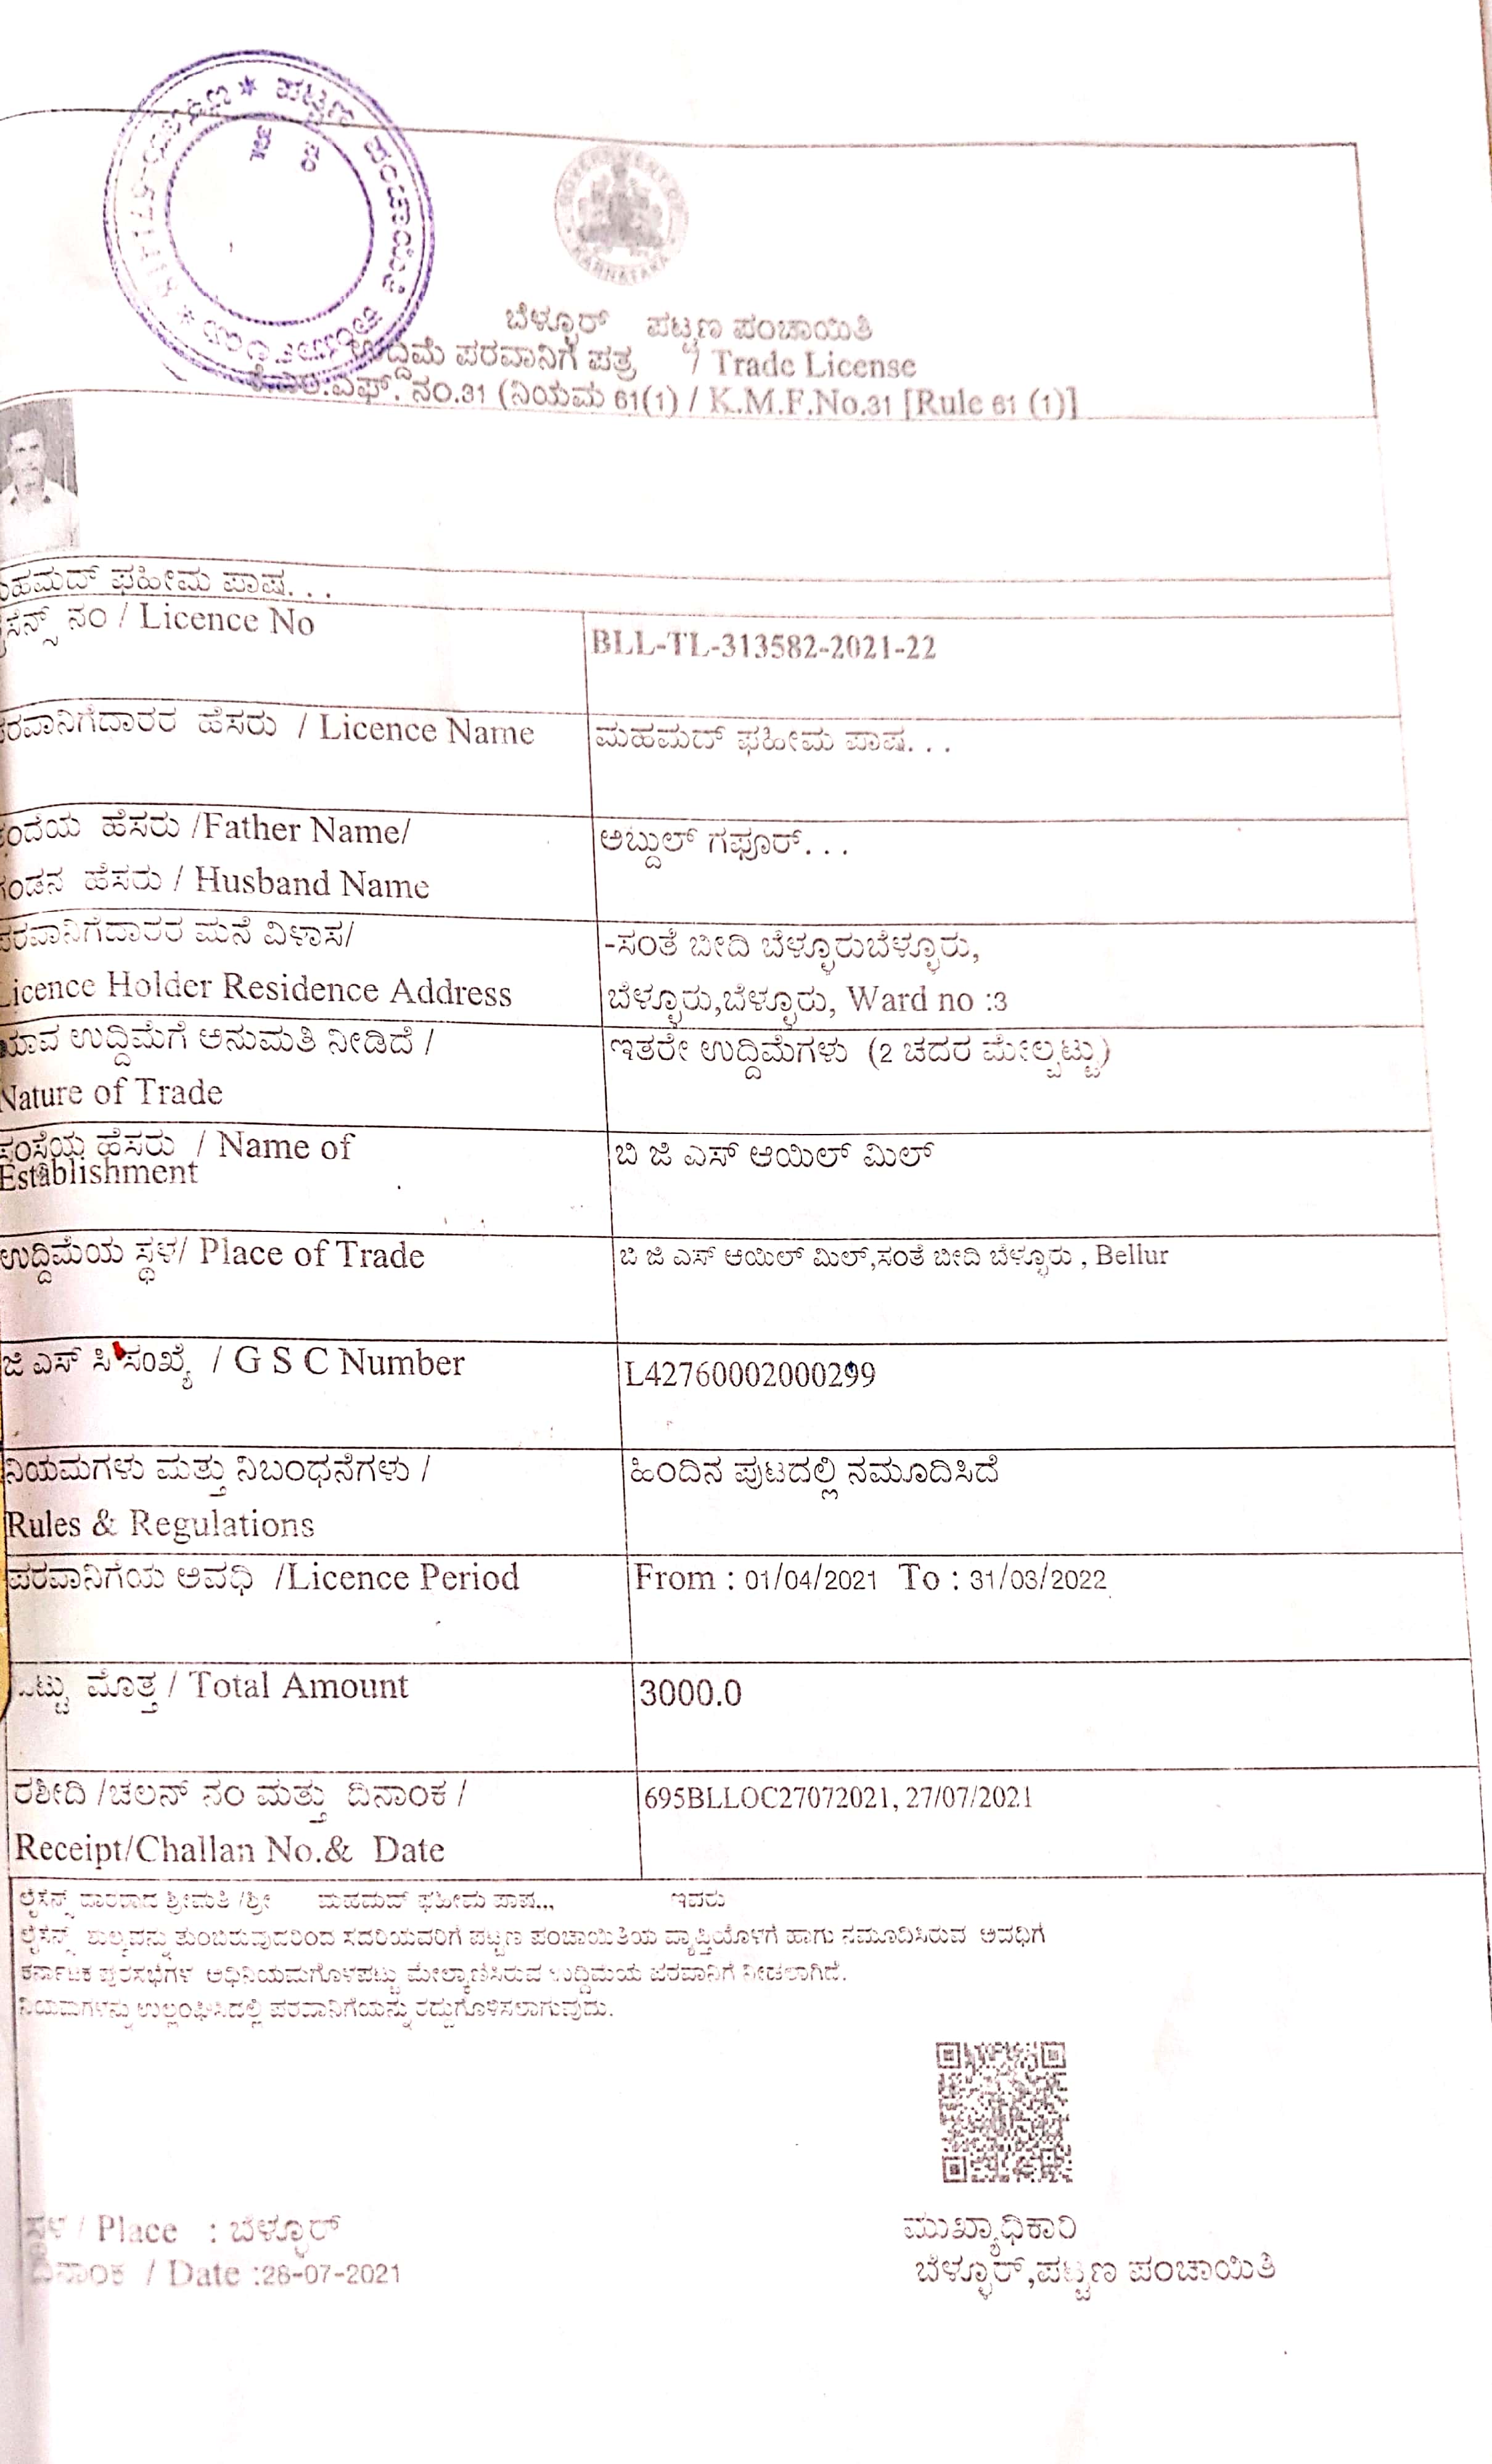 ಪಟ್ಟಣ ಪಂಚಾಯಿತಿ ಕಾರ್ಯಾಲಯ
GOVERNMENT OF KARNATAKA
ಬೆಳ್ಳೂರ್ ಪಟ್ಟಣ ಪಂಚಾಯಿತಿ
ಉದ್ದಿಮೆ ಪರವಾನಿಗೆ ಪತ್ರ / Trade License
ಕೆ.ಎಂ.ಎಫ್. ನಂ.31 (ನಿಯಮ 61(1) / K.M.F.No.31 [Rule 61 (1)]
ಮಹಮದ್ ಫಹೀಮ ಪಾಷ...
ಲೈಸೆನ್ಸ್ ನಂ / Licence No
BLL-TL-313582-2021-22
ಪರವಾನಿಗೆದಾರರ ಹೆಸರು / Licence Name
ಮಹಮದ್ ಫಹೀಮ ಪಾಷ...
ತಂದೆಯ ಹೆಸರು /Father Name/
ಗಂಡನ ಹೆಸರು / Husband Name
ಅಬ್ದುಲ್ ಗಫೂರ್...
ಪರವಾನಿಗೆದಾರರ ಮನೆ ವಿಳಾಸ/
Licence Holder Residence Address
-ಸಂತೆ ಬೀದಿ ಬೆಳ್ಳೂರುಬೆಳ್ಳೂರು,
ಬೆಳ್ಳೂರು,ಬೆಳ್ಳೂರು, Ward no :3
ಯಾವ ಉದ್ದಿಮೆಗೆ ಅನುಮತಿ ನೀಡಿದೆ /
Nature of Trade
ಇತರೇ ಉದ್ದಿಮೆಗಳು (2 ಚದರ ಮೇಲ್ಪಟ್ಟು)
ಸಂಸ್ಥೆಯ ಹೆಸರು / Name of
Establishment
ಬಿ ಜಿ ಎಸ್ ಆಯಿಲ್ ಮಿಲ್
ಉದ್ದಿಮೆಯ ಸ್ಥಳ/ Place of Trade
ಬಿ ಜಿ ಎಸ್ ಆಯಿಲ್ ಮಿಲ್,ಸಂತೆ ಬೀದಿ ಬೆಳ್ಳೂರು , Bellur
ಜಿ ಎಸ್ ಸಿ ಸಂಖ್ಯೆ / G S C Number
L42760002000299
ನಿಯಮಗಳು ಮತ್ತು ನಿಬಂಧನೆಗಳು /
Rules & Regulations
ಹಿಂದಿನ ಪುಟದಲ್ಲಿ ನಮೂದಿಸಿದೆ
ಪರವಾನಿಗೆಯ ಅವಧಿ /Licence Period
From : 01/04/2021 To : 31/03/2022
ಒಟ್ಟು ಮೊತ್ತ / Total Amount
3000.0
ರಶೀದಿ /ಚಲನ್ ನಂ ಮತ್ತು ದಿನಾಂಕ /
Receipt/Challan No.& Date
695BLLOC27072021, 27/07/2021
ಲೈಸೆನ್ಸ್ ದಾರರಾದ ಶ್ರೀಮತಿ /ಶ್ರೀ ಮಹಮದ್ ಫಹೀಮ ಪಾಷ... ಇವರು
ಲೈಸೆನ್ಸ್ ಶುಲ್ಕವನ್ನು ತುಂಬಿರುವುದರಿಂದ ಸದರಿಯವರಿಗೆ ಪಟ್ಟಣ ಪಂಚಾಯಿತಿಯ ವ್ಯಾಪ್ತಿಯೊಳಗೆ ಹಾಗು ನಮೂದಿಸಿರುವ ಅವಧಿಗೆ
ಕರ್ನಾಟಕ ಪುರಸಭೆಗಳ ಅಧಿನಿಯಮಗೊಳಪಟ್ಟು ಮೇಲ್ಕಾಣಿಸಿರುವ ಉದ್ದಿಮೆಯ ಪರವಾನಿಗೆ ನೀಡಲಾಗಿದೆ.
ನಿಯಮಗಳನ್ನು ಉಲ್ಲಂಘಿಸಿದಲ್ಲಿ ಪರವಾನಿಗೆಯನ್ನು ರದ್ದುಗೊಳಿಸಲಾಗುವುದು.
ಸ್ಥಳ / Place : ಬೆಳ್ಳೂರ್
ದಿನಾಂಕ / Date :28-07-2021
ಮುಖ್ಯಾಧಿಕಾರಿ
ಬೆಳ್ಳೂರ್,ಪಟ್ಟಣ ಪಂಚಾಯಿತಿ